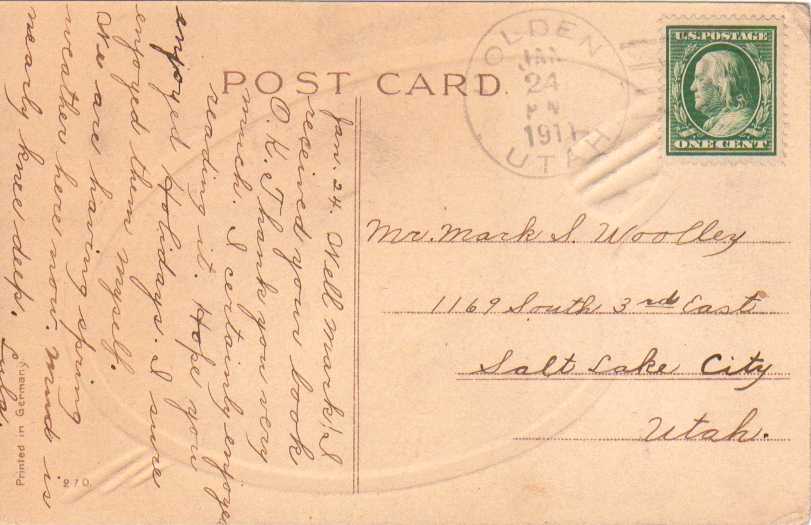 POST CARD.
OLDEN
JAN
24
1911
UTAH
U.S. POSTAGE
ONE CENT
Jan. 24. Well Mark! I
received your book
O.K. Thank you very
much. I certainly enjoyed
reading it. Hope you
enjoyed Holidays. I sure
enjoyed them myself.
We are having spring
weather here now. Mud is
nearly knee deep.
Lula.
Mr. Mark S. Woolley
1169 South 3rd East
Salt Lake City
Utah.
Printed in Germany
270.